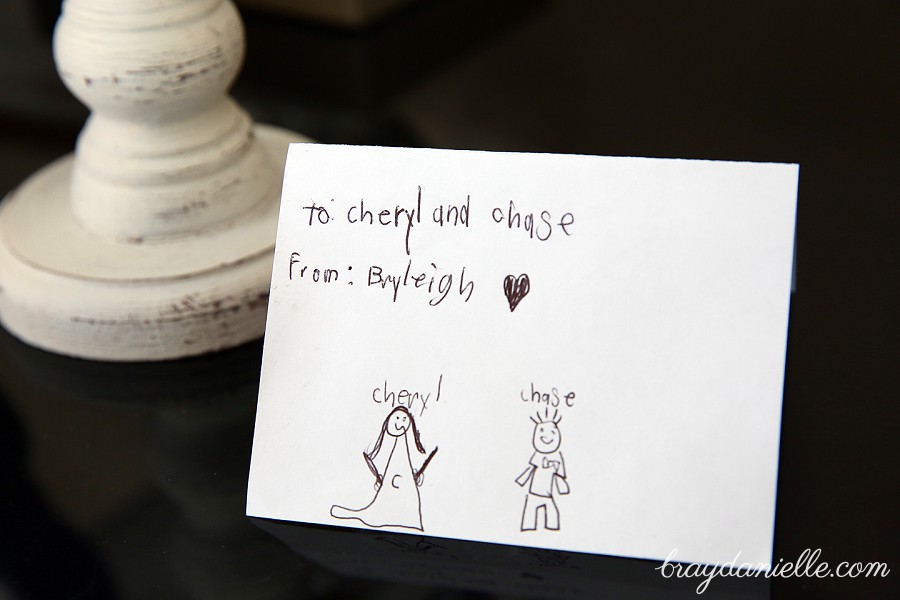 To: cheryl and chase
From: Bryleigh ♥
cheryl chase
C
braydanielle.com